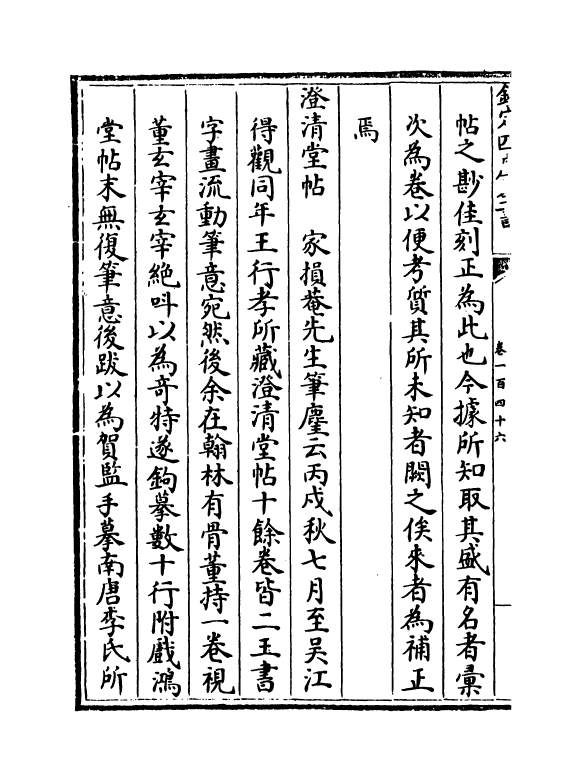 卷一百四十六
帖之尠佳刻正為此也今據所知取其盛有名者彙
次為卷以便考質其所未知者闕之俟來者為補正
焉
澄清堂帖 家損菴先生筆麈云丙戌秋七月至吳江
得觀同年王行孝所藏澄清堂帖十餘卷皆二王書
字畫流動筆意宛然後余在翰林有骨董持一卷視
董玄宰玄宰絶呌以為竒特遂鉤摹數十行附戲鴻
堂帖末無復筆意後跋以為賀監手摹南唐李氏所